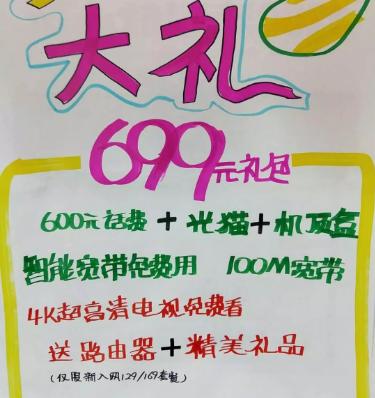 大礼
699元礼包
600元话费+光猫+机顶盒
智能宽带免费用 100M宽带
4K超高清电视免费看
送路由器+精美礼品
(仅限新入网129/169套餐)